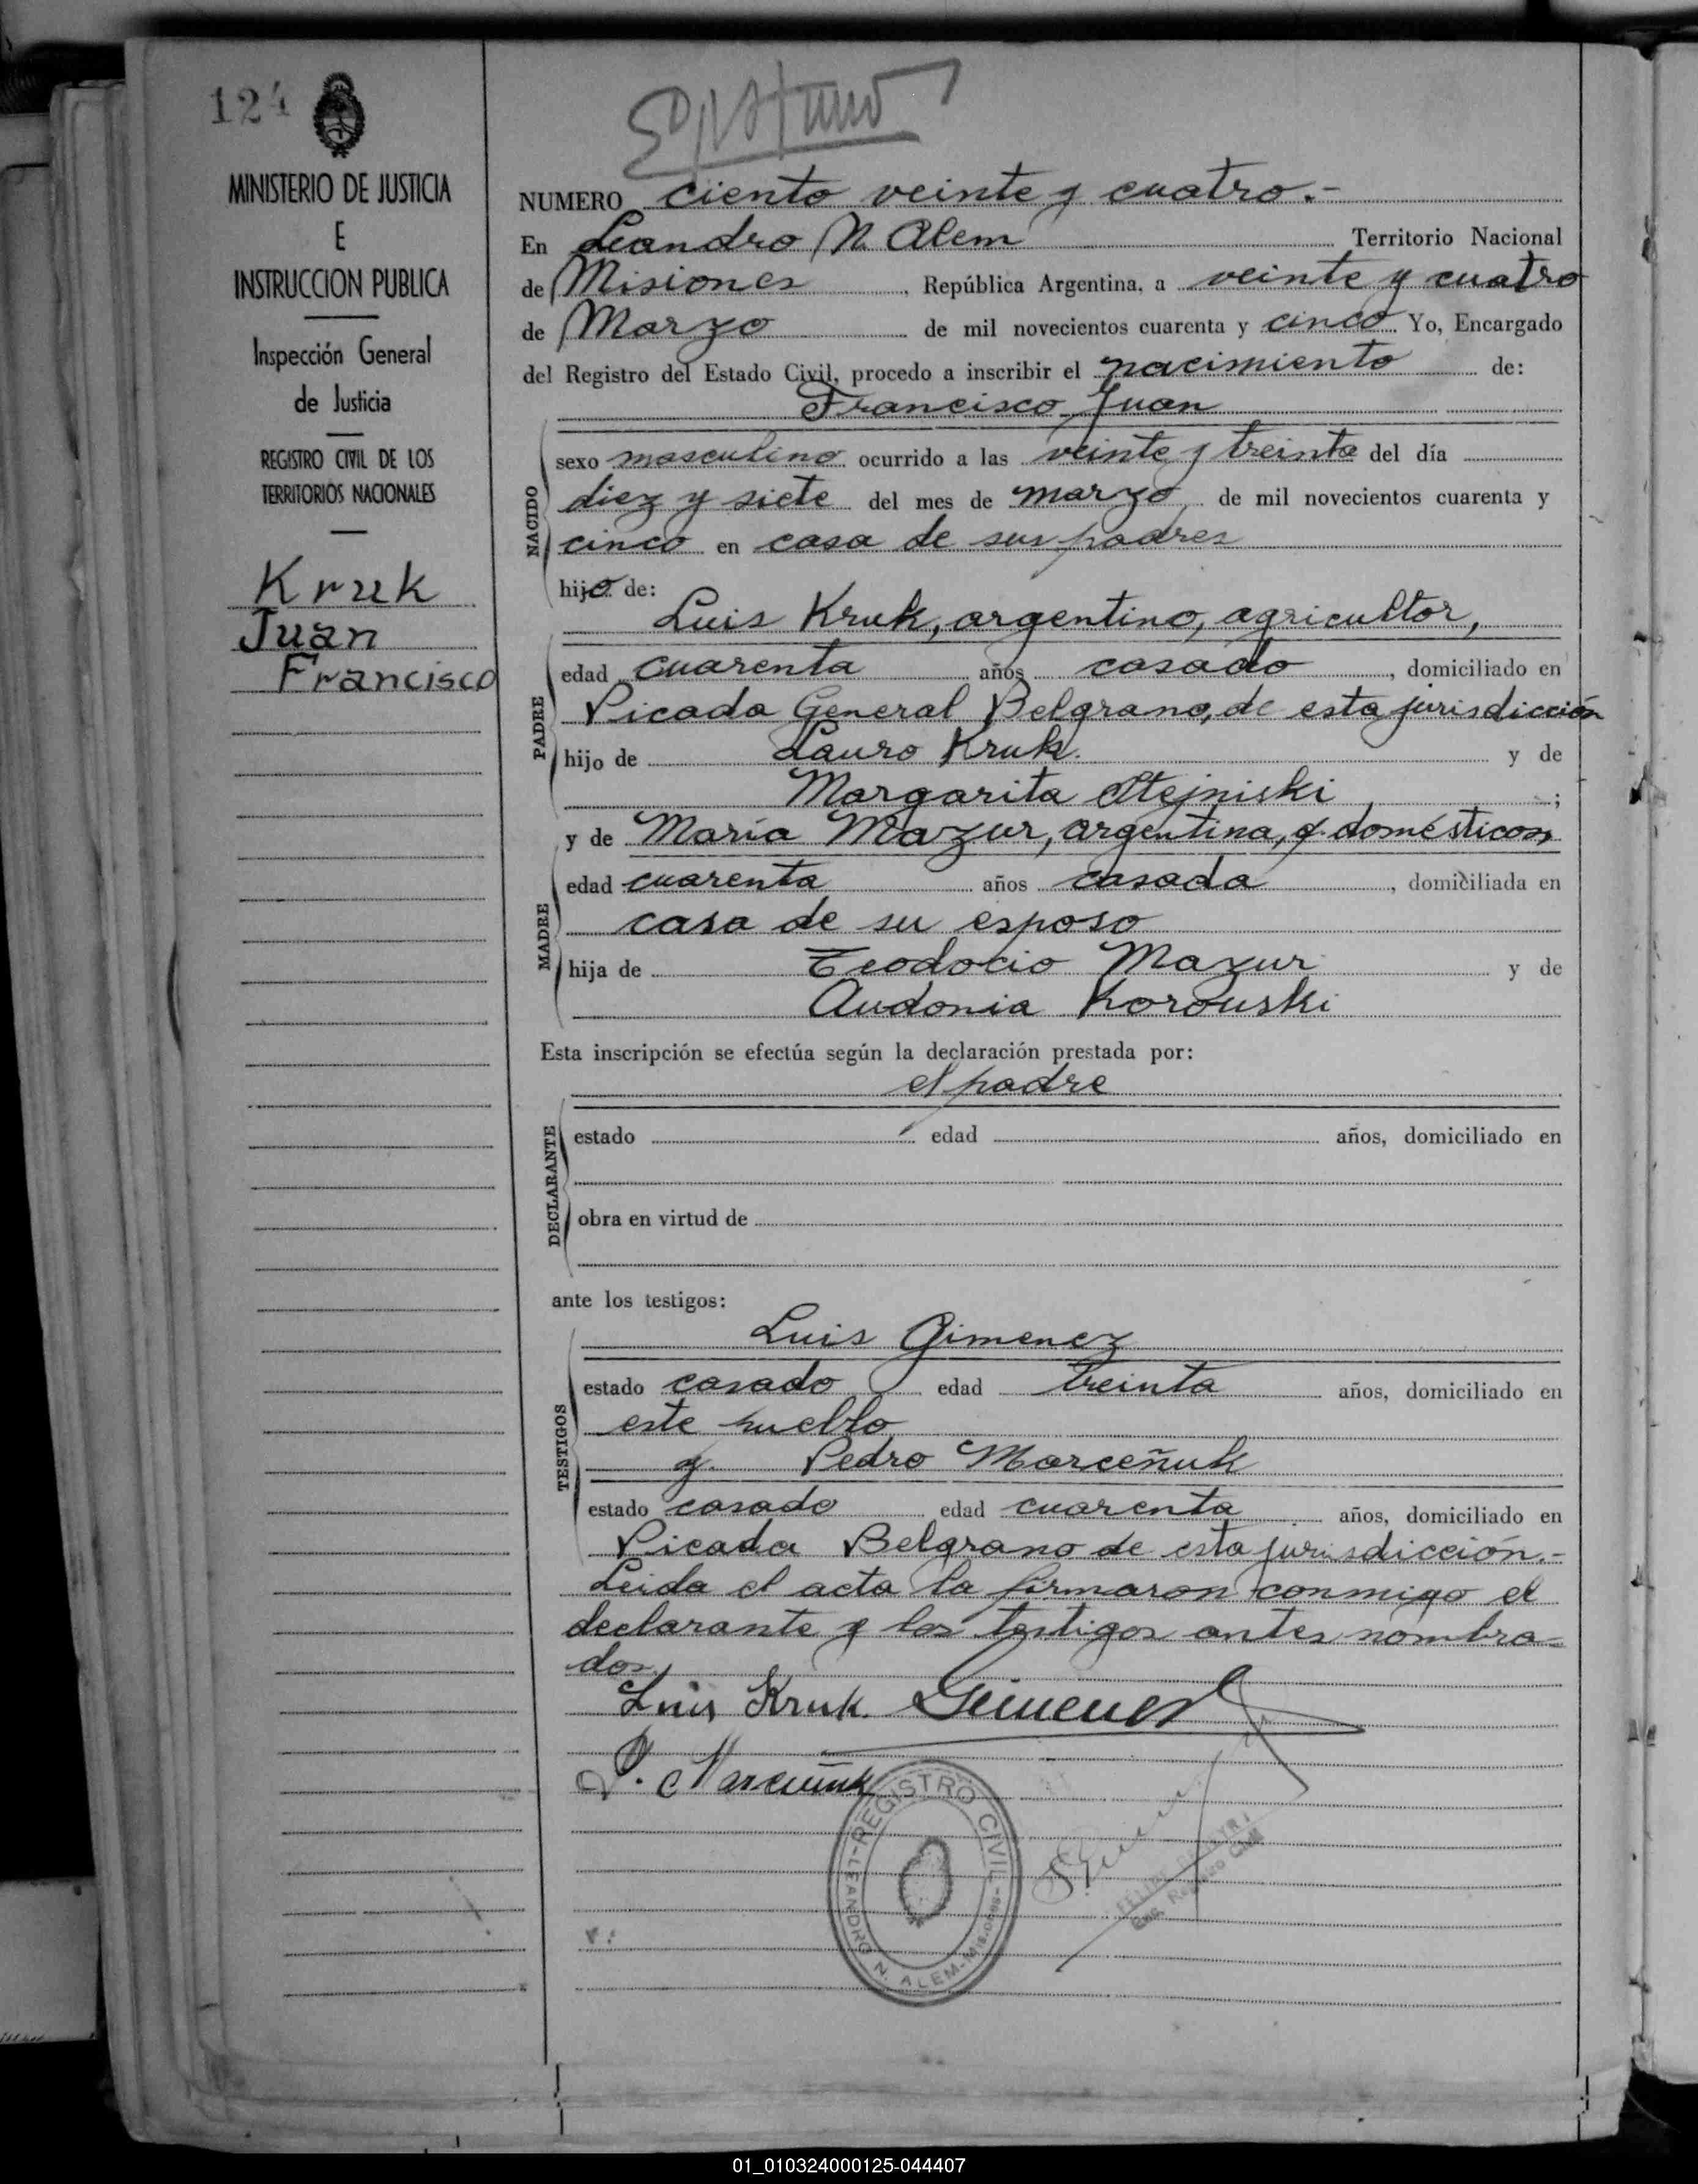 124
MINISTERIO DE JUSTICIA
E
INSTRUCCION PUBLICA
Inspección General
de Justicia
REGISTRO CIVIL DE LOS
TERRITORIOS NACIONALES
Kruk
Juan
Francisco
NUMERO ciento veinte y cuatro.-
En Leandro N. Alem Territorio Nacional
de Misiones, República Argentina, a veinte y cuatro
de Marzo de mil novecientos cuarenta y cinco Yo, Encargado
del Registro del Estado Civil, procedo a inscribir el nacimiento de:
Francisco Juan
NACIDO
sexo masculino ocurrido a las veinte y treinta del día
diez y siete del mes de marzo de mil novecientos cuarenta y
cinco en casa de sus padres
hijo de:
Luis Kruk, argentino, agricultor,
PADRE
edad cuarenta años casado, domiciliado en
Picada General Belgrano, de esta jurisdicción
hijo de Lauro Kruk. y de
Margarita Stejniski ;
y de María Mazur, argentina, q. domésticos,
MADRE
edad cuarenta años casada, domiciliada en
casa de su esposo
hija de Teodocio Mazur y de
Audonia Korouski
Esta inscripción se efectúa según la declaración prestada por:
el padre
DECLARANTE
estado edad años, domiciliado en
obra en virtud de
ante los testigos:
Luis Gimenez
TESTIGOS
estado casado edad treinta años, domiciliado en
este pueblo
y. Pedro Marceñuk
estado casado edad cuarenta años, domiciliado en
Picada Belgrano de esta jurisdicción.-
Leida el acta la firmaron conmigo el
declarante y los testigos antes nombra-
dos.
Luis Kruk. Gimenez
P. Marceñuk
REGISTRO CIVIL
LEANDRO N. ALEM-Misiones-
Enc. Registro Civil
01_010324000125-044407